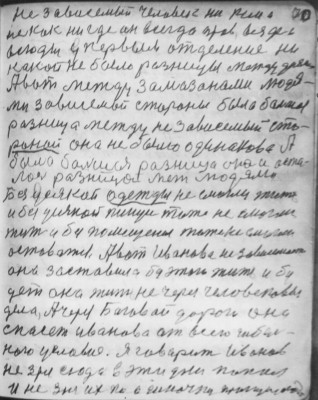 не зависемый человек ни кем а
никак нигде он всегда прав везде
всюду у первым отделение ни
какой не было разницы между
А вот между замазанами людя-
ми зависемой стороны была болшая
разница между не зависемый сто-
роной она не было одинакова А
была болшая разница она и оста-
лася разницой меж людями
Без усякой одежды не смогли жить
и без усякой пищи тоже не смогли
жить и без помещения тоже не смогли
оставатся, А вот Иванова не зависимость
она заставила без этого жить и бу-
дет она жить не через человековы
дела, А через Боговой дороги она
спасет иванова от всего гибель-
ного условие. Я говорит Иванов
не зря сюда в эти дни попал
и не зря их по одиночки